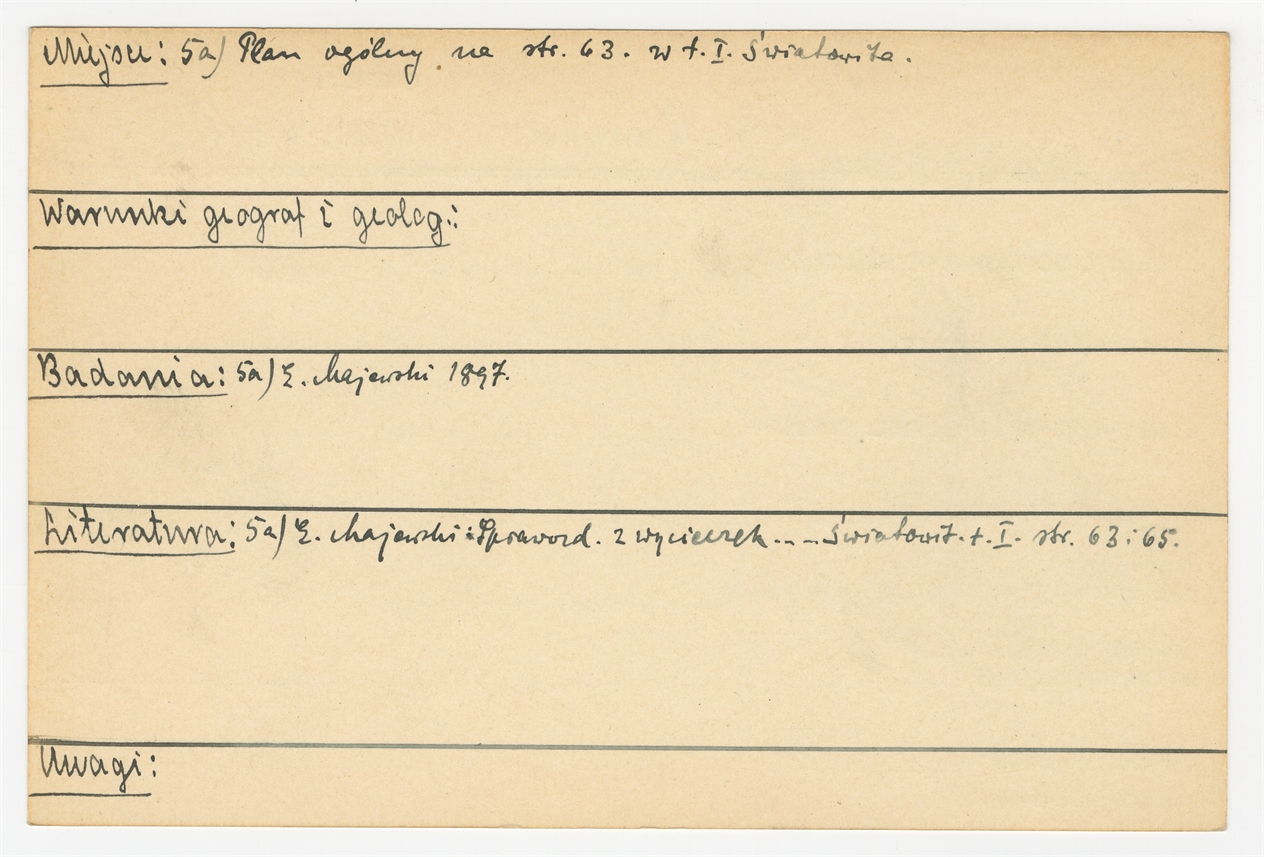 Miejsce: 5a) Plan ogólny na str. 63. w t. I. Światowita.
Warunki geograf i geolog.:
Badania: 5a) E. Majewski 1897.
Literatura: 5a) E. Majewski: Sprawozd. z wycieczek.... Światowit. t. I. str. 63 i 65.
Uwagi: